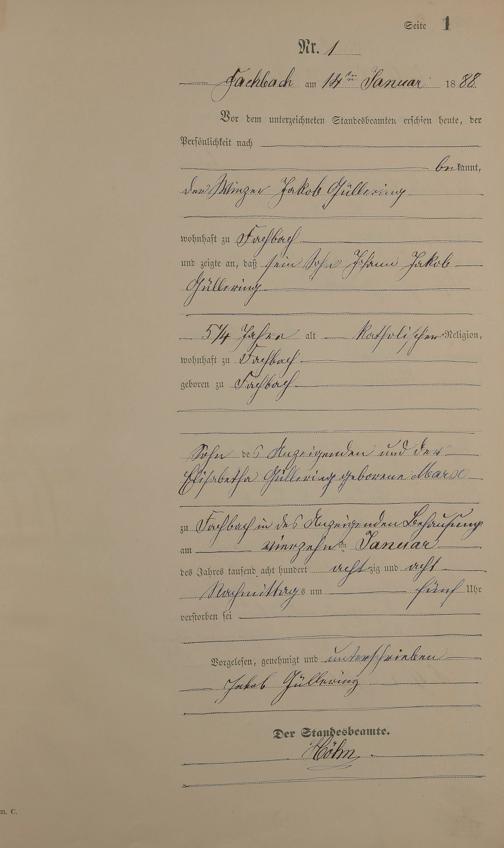 Seite 1
Nr. 1
Fachbach am 14ten Januar 1888.
Vor dem unterzeichneten Standesbeamten erschien heute, der
Persönlichkeit nach
bekannt,
der Winzer Jakob Güllering
wohnhaft zu Fachbach
und zeigte an, daß sein Sohn Johann Jakob
Güllering
5 1/4 Jahre alt katholischer Religion,
wohnhaft zu Fachbach
geboren zu Fachbach
Sohn des Anzeigenden und der
Elisabetha Güllering geborene Marx
zu Fachbach in des Anzeigenden Behausung
am vierzehnten Januar
des Jahres tausend acht hundert achtzig und acht
Nachmittags um fünf Uhr
verstorben sei
Vorgelesen, genehmigt und unterschrieben
Jakob Güllering
Der Standesbeamte.
Höhn
m. C.